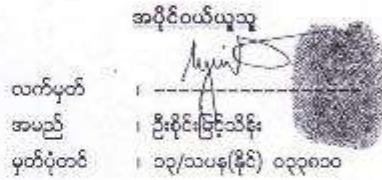 အပိုင်ဝယ်ယူသူ
လက်မှတ် ၊ --------------------
အမည် ၊ ဦးစိုင်းမြင့်သိန်း
မှတ်ပုံတင် ၊ ၁၃/သပန(နိုင်) ၀၃၃၈၁၀